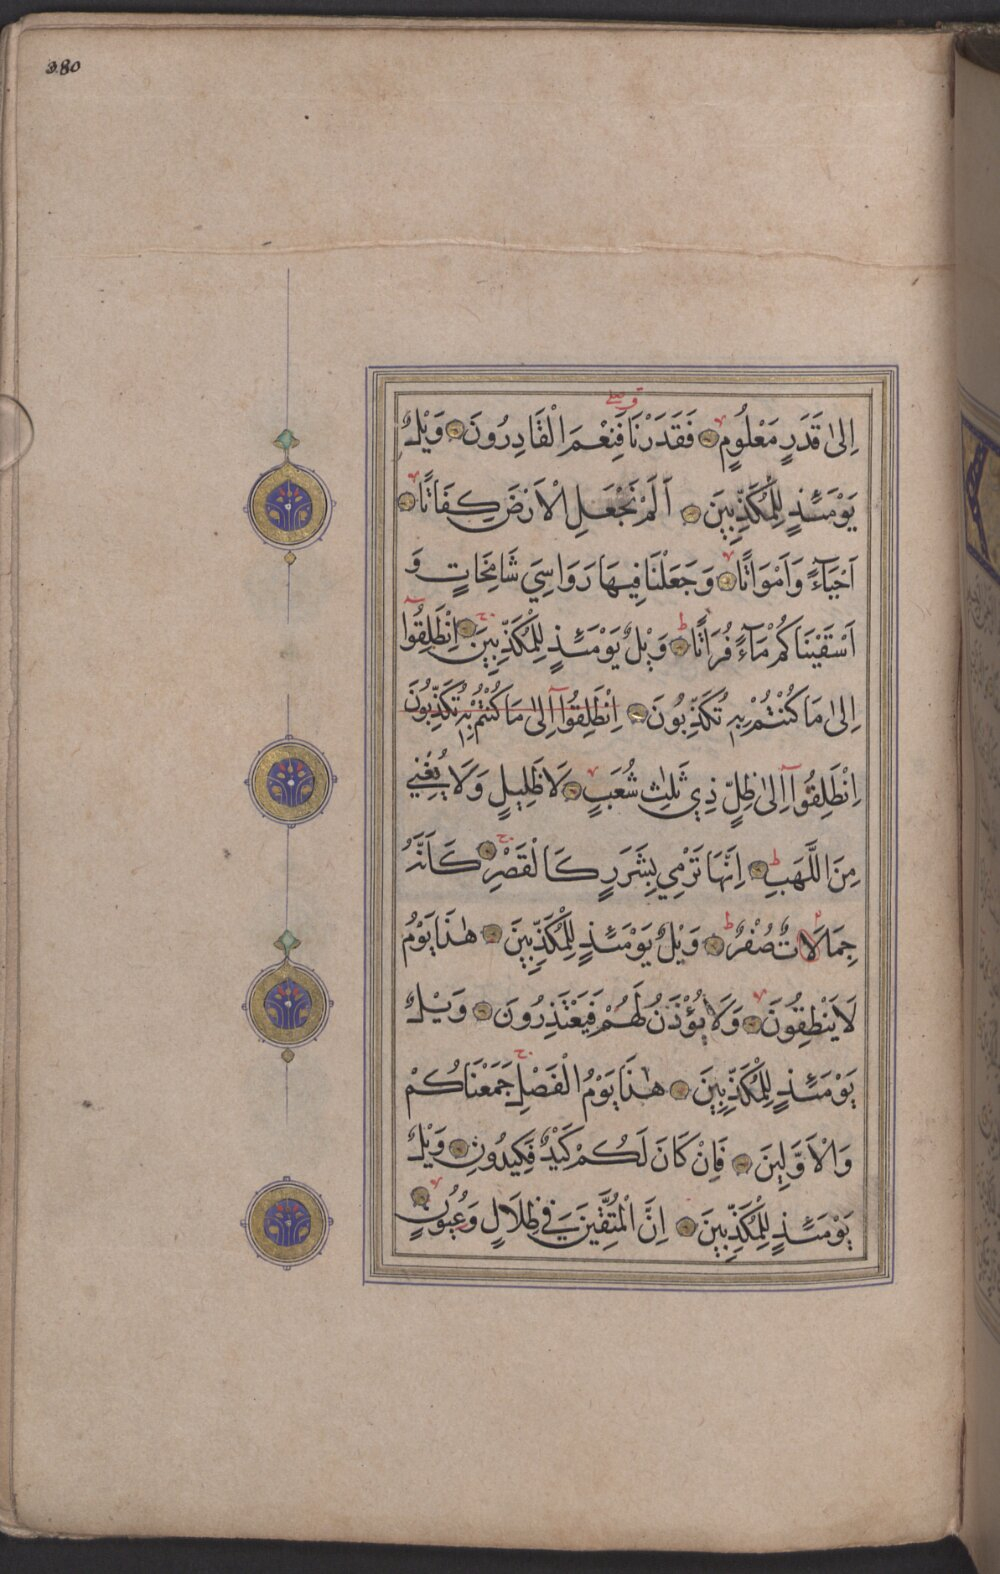 380
اِلىٰ قَدَرٍ مَعْلُومٍ فَقَدَرْنَا فَنِعْمَ الْقَادِرُونَ وَيْلٌ
يَوْمَئِذٍ لِلْمُكَذِّبِينَ اَلَمْ نَجْعَلِ الْاَرْضَ كِفَاتًا
اَحْيَآءً وَاَمْوَاتًا وَجَعَلْنَا فِيهَا رَوَاسِيَ شَامِخَاتٍ وَ
اَسْقَيْنَاكُمْ مَآءً فُرَاتًا وَيْلٌ يَوْمَئِذٍ لِلْمُكَذِّبِينَ اِنْطَلِقُوٓا
اِلىٰ مَا كُنْتُمْ بِهِ تُكَذِّبُونَ اِنْطَلِقُوٓا اِلىٰ مَا كُنْتُمْ بِهِ تُكَذِّبُونَ
اِنْطَلِقُوٓا اِلىٰ ظِلٍّ ذِي ثَلٰثِ شُعَبٍ لَا ظَلِيلٍ وَلَا يُغْنِي
مِنَ اللَّهَبِ اِنَّهَا تَرْمِي بِشَرَرٍ كَالْقَصْرِ كَاَنَّهُ
جِمَالَاتٌ صُفْرٌ وَيْلٌ يَوْمَئِذٍ لِلْمُكَذِّبِينَ هٰذَا يَوْمُ
لَا يَنْطِقُونَ وَلَا يُؤْذَنُ لَهُمْ فَيَعْتَذِرُونَ وَيْلٌ
يَوْمَئِذٍ لِلْمُكَذِّبِينَ هٰذَا يَوْمُ الْفَصْلِ جَمَعْنَاكُمْ
وَالْاَوَّلِينَ فَاِنْ كَانَ لَكُمْ كَيْدٌ فَكِيدُونِ وَيْلٌ
يَوْمَئِذٍ لِلْمُكَذِّبِينَ اِنَّ الْمُتَّقِينَ فِي ظِلَالٍ وَعُيُونٍ